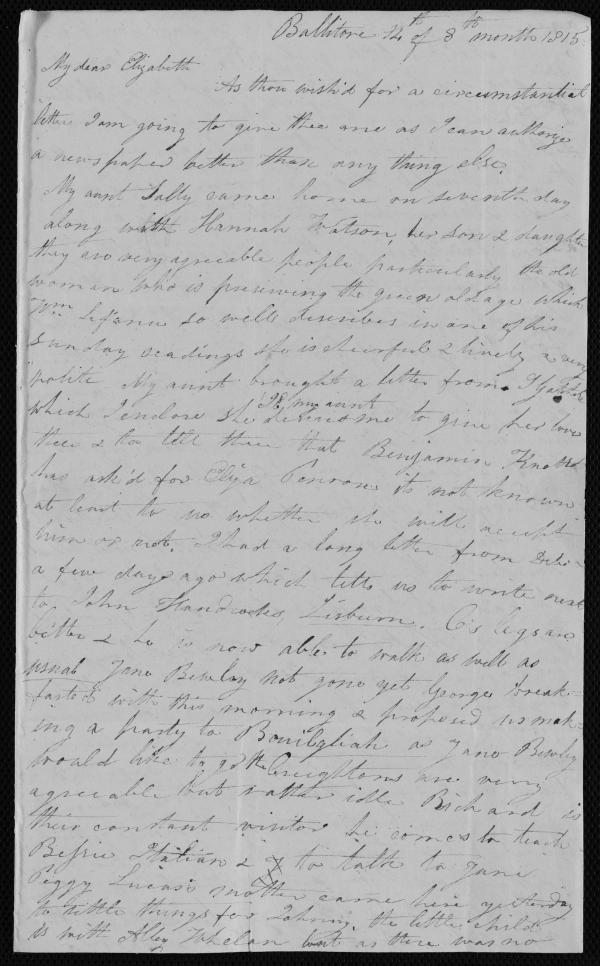 Ballitore 14th of 8th month 1815
My dear Elizabeth
As thou wish'd for a circumstantial
letter I am going to give thee one as I can authorize
a newspaper better than any thing else.
My aunt Sally came home on seventh day
along with Hannah Watson, her son & daughter
they are very agreeable people particularly the old
woman who is preserving the green old age which
Wm Lefanu so well describes in one of his
Sunday readings she is cheerful & lively & very
polite My aunt brought a letter from
which I enclose she desires me to give her love
I E my aunt
thee & to tell thee that Benjamin
has ask'd for Eliza Penrose it's not known
at least to us whether she will accept
him or not. I had a long letter from
a few days ago which tells us to write next
to John Handcocks, Lisburn. C's legs are
better & he is now able to walk as well as
usual Jane Bewley not gone yet George break=
fasted with this morning & proposed us mak=
ing a party to as Jane Bewley
would like to go the Creightons are very
agreeable but rather idle Richard is
their constant visitor he comes to teach
Bessie Italian & to talk to Jane
Peggy Lucas's mother came here yesterday
to settle things for Johnny. the little child
is with Alley Whelan but as there was no